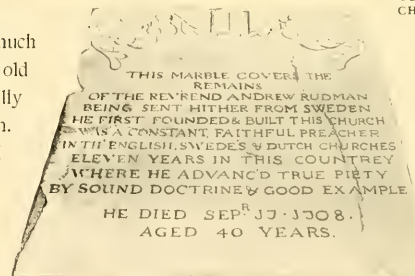 CH
much
old
lly
n.
THIS MARBLE COVERS THE
REMAINS
OF THE REVREND ANDREW RUDMAN
BEING SENT HITHER FROM SWEDEN
HE FIRST FOUNDED & BUILT THIS CHURCH
WAS A CONSTANT, FAITHFUL PREACHER
IN TH' ENGLISH, SWEDES & DUTCH CHURCHES
ELEVEN YEARS IN THIS COUNTREY
WHERE HE ADVANC'D TRUE PIETY
BY SOUND DOCTRINE & GOOD EXAMPLE
HE DIED SEPR 17·1708.
AGED 40 YEARS.